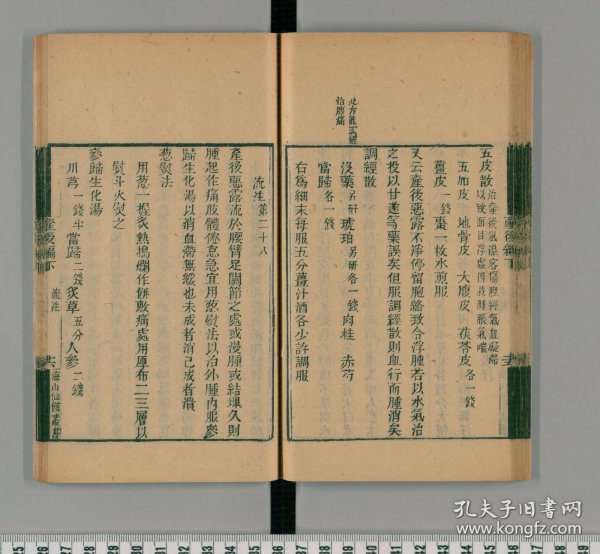 五皮散
五加皮 地骨皮 大腹皮 茯苓皮各一錢
薑皮一錢 棗一枚水煎服
又云產後惡露不淨停留胞絡致令浮腫若以水氣治
之投以甘遂等藥誤矣但服調經散則血行而腫消矣
調經散
沒藥另研 琥珀另研各一錢 肉桂 赤芍
當歸各一錢
右爲細末每服五分薑汁酒各少許調服
治腹痛
流注第二十八
產後惡露流於腰臂足關節之處或漫腫或結塊久則
腫起作痛肢體倦怠急宜用葱熨法以治外腫內服參
歸生化湯以消血滯無緩也未成者消已成者潰
葱熨法
用葱一握炙熱搗爛作餅敷痛處用厚布二三層以
熨斗火熨之
參歸生化湯
川芎一錢半當歸二錢炙草五分人參二錢
產後編下 流注
海山仙館叢書
孔夫子旧书网
www.kongfz.com
25 27 28 29 30 31 32 33 34 35 36 37 38 39 40 41 42 43 44 45 46 47 48 49